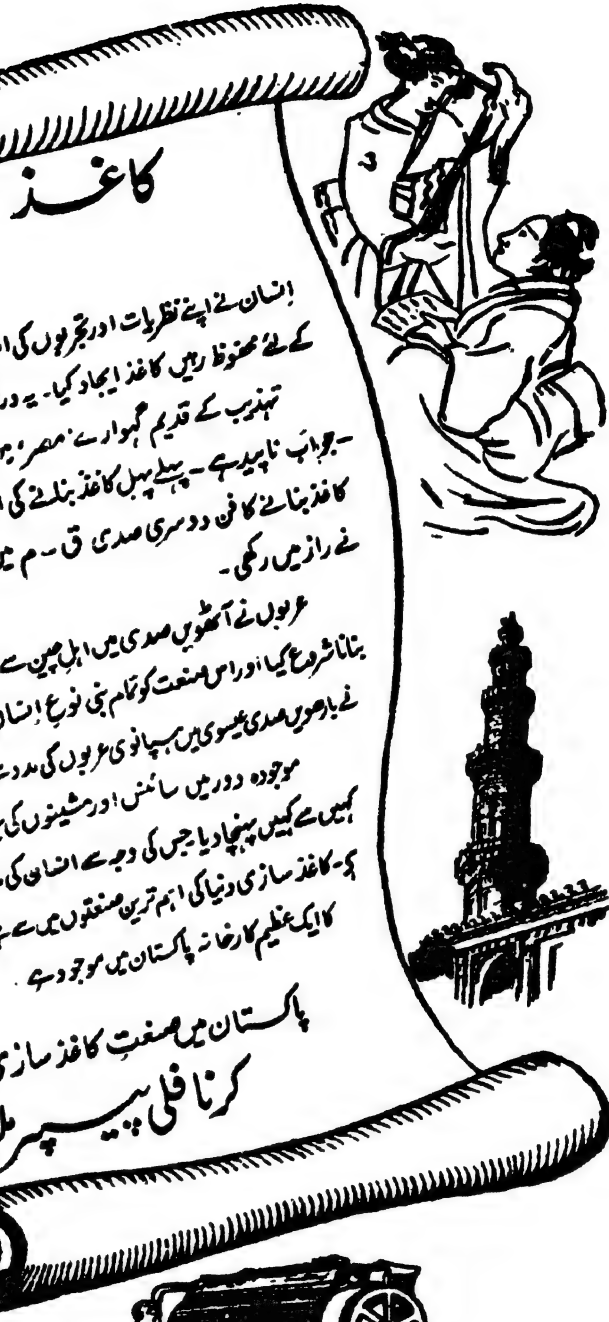 کاغذ
انسان نے اپنے نظریات اور تجربوں کی
کے لئے محفوظ رہیں کاغذ ایجاد کیا۔ یہ
تہذیب کے قدیم گہوارے مصر
۔ جو اب ناپید ہے۔ پہلے پہل کاغذ بنانے کی
کاغذ بنانے کا فن دوسری صدی ق۔م میں
نے راز میں رکھی۔
عربوں نے آٹھویں صدی میں اہل چین سے
بنانا شروع کیا اور اس صنعت کو تمام بنی نوع انسان
نے بارھویں صدی عیسوی میں ہسپانوی عربوں کی مدد
موجودہ دور میں سائنس اور مشینوں کی
کہیں سے کہیں پہنچا دیا جس کی وجہ سے انسان کی
کاغذ سازی دنیا کی اہم ترین صنعتوں میں سے
کا ایک عظیم کارخانہ پاکستان میں موجود ہے۔
پاکستان میں صنعتِ کاغذ سازی
کرنافلی پیپر